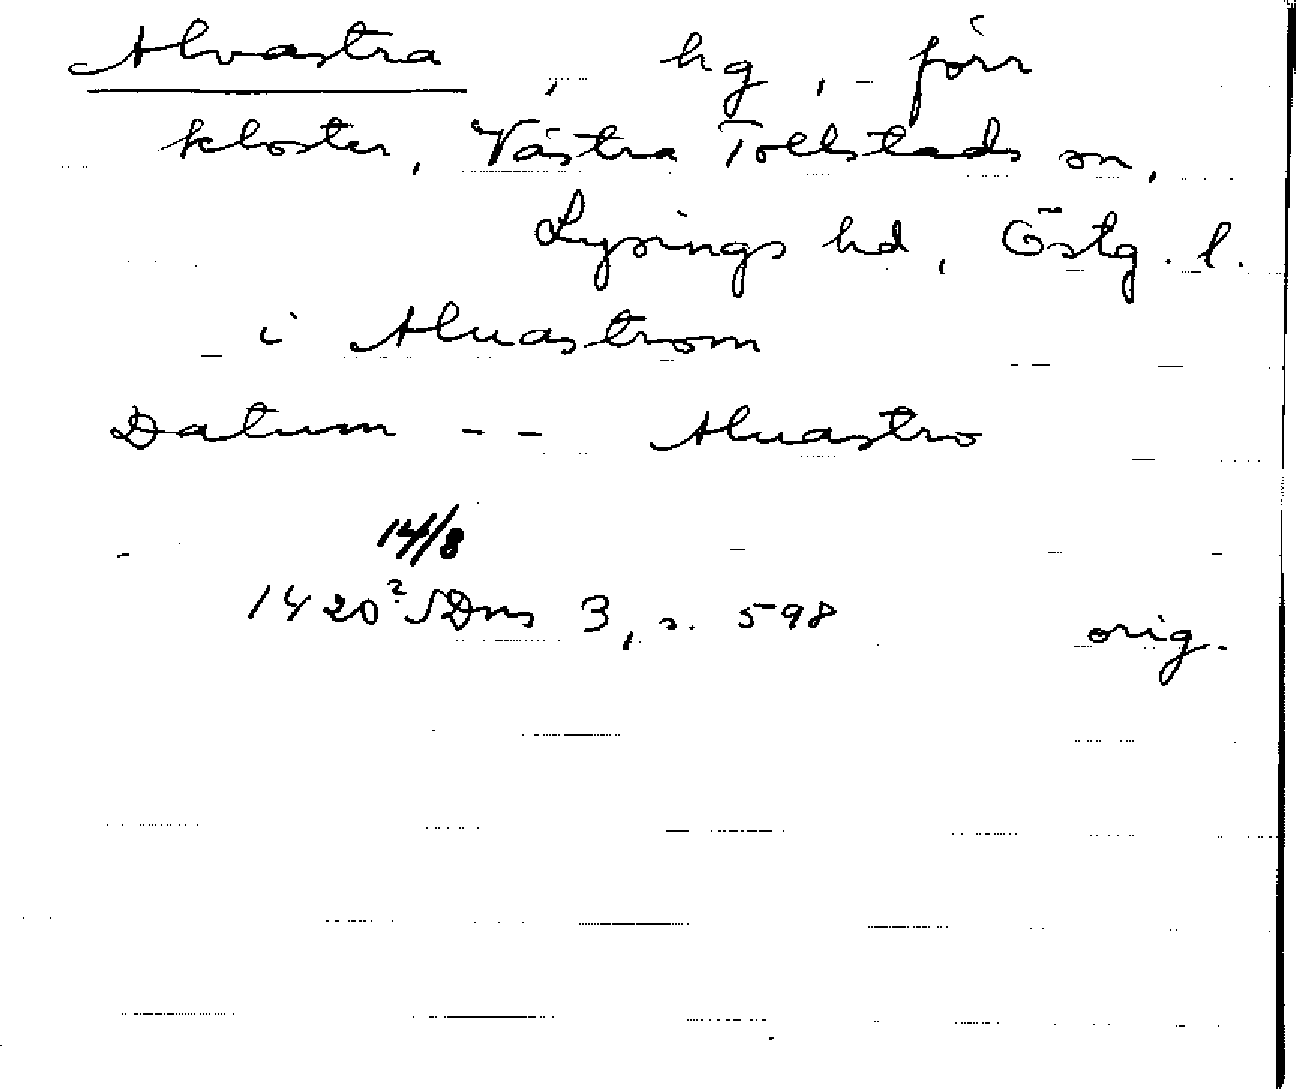 Alvastra, hg, förr
kloster, Västra Tollstads sn,
Lysings hd, Östg. l.
i Aluastrom
Datum -- Aluastro
14/8
1420? SDns 3, s. 598 orig.